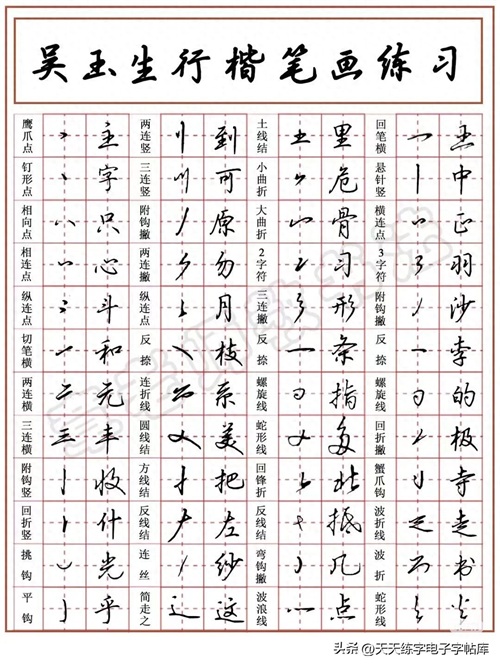 吴玉生行楷笔画练习
鹰爪点 主 两连竖 到 土线结 里 回笔横 王
钉形点 字 三连竖 可 小曲折 危 悬针竖 中
相向点 只 附钩撇 原 大曲折 骨 横连点 正
相连点 心 两连撇 勿 2字符 习 3字符 羽
纵连点 斗 纵连点 月 三连撇 形 附钩撇 沙
切笔横 和 反捺 枝 反捺 条 反捺 李
两连横 元 连折线 系 螺旋线 指 螺旋线 的
三连横 丰 圆线结 美 蛇形线 多 回折撇 极
附钩竖 收 方线结 把 回锋折 北 蟹爪钩 寺
回折竖 什 反线结 左 反线结 抵 波折线 走
挑钩 光 连丝 纱 弯钩撇 几 波折 书
平钩 乎 简走之 这 波浪线 点 蛇形线
头条 @天天练字电子字帖库